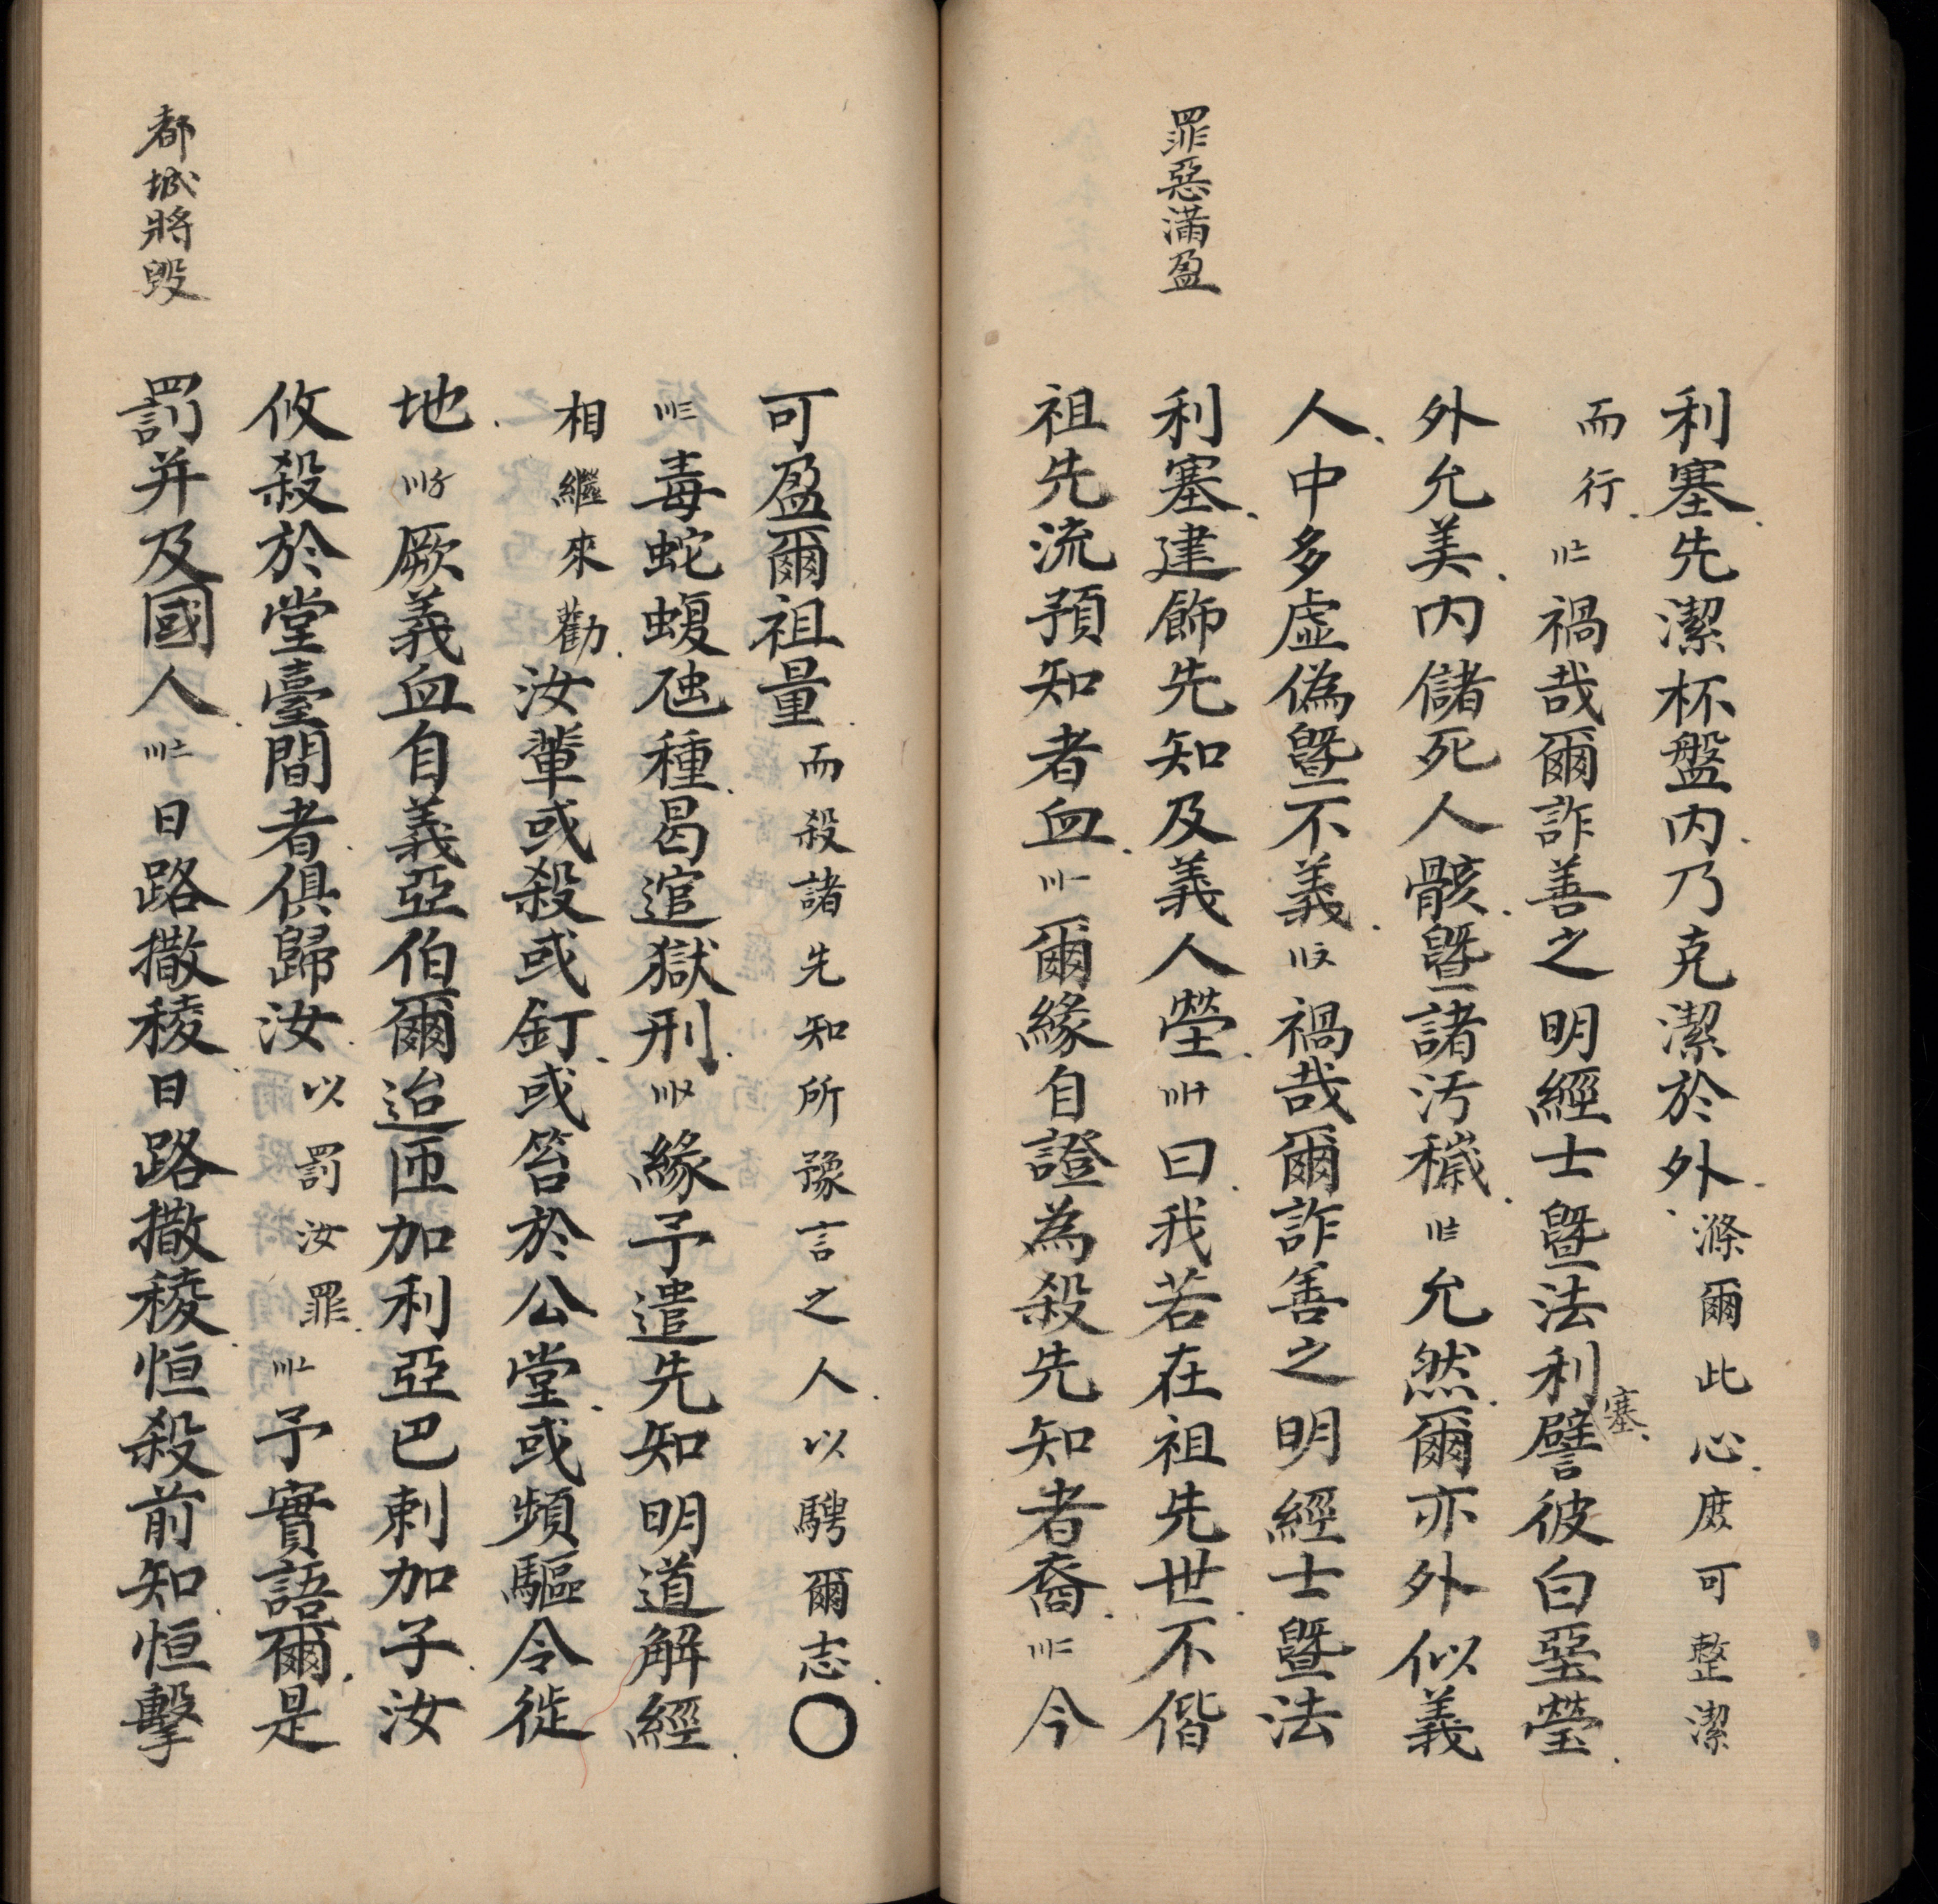 罪惡滿盈
利塞.先潔杯盤內.乃克潔於外.滌爾此心.庶可整潔
而行.禍哉爾詐善之明經士暨法利塞.譬彼白堊塋.
外允美.內儲死人骸.暨諸汚穢.允然.爾亦外似義
人.中多虛偽暨不義.禍哉爾詐善之明經士暨法
利塞.建飾先知及義人塋.曰.我若在祖先世.不偕
祖先流預知者血.爾緣自證為殺先知者裔.今
可盈爾祖量.而殺諸先知所豫言之人.以騁爾志.〇
毒蛇蝮虺種.曷逭獄刑.緣予遣先知明道解經.
相繼來勸.汝輩或殺或釘.或笞於公堂.或頻驅令徙
地.厥義血自義亞伯爾迨匝加利亞巴剌加子.汝
攸殺於堂臺間者.俱歸汝.以罰汝罪.予實語爾.是
都城將毀
罰并及國人.日路撒稜.日路撒稜.恒殺前知恒擊